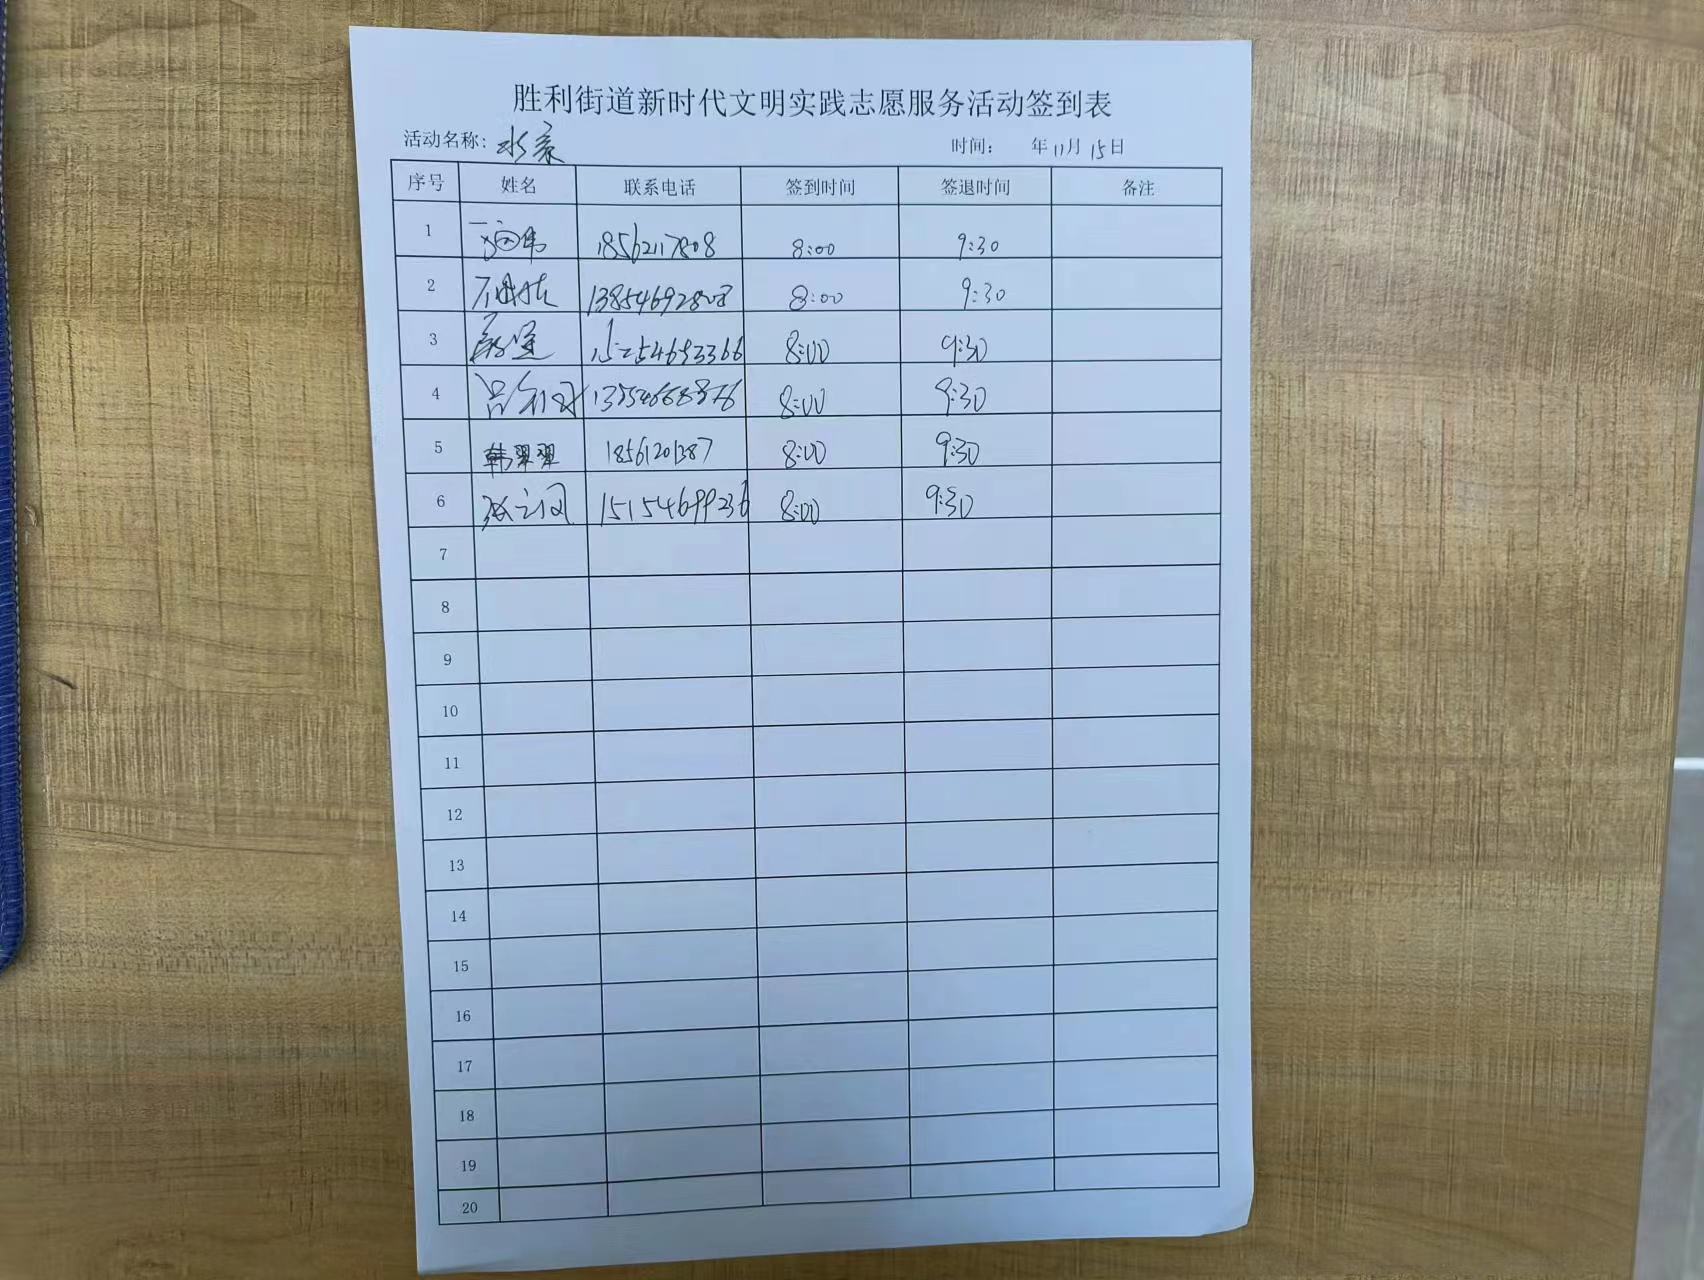 胜利街道新时代文明实践志愿服务活动签到表
活动名称：水系 时间： 年11月15日
序号 姓名 联系电话 签到时间 签退时间 备注
1 18562117808 8:00 9:30
2 13854692808 8:00 9:30
3 15254693366 8:00 9:30
4 8:00 9:30
5 韩翠翠 18561201387 8:00 9:30
6 15154699236 8:00 9:30
7
8
9
10
11
12
13
14
15
16
17
18
19
20